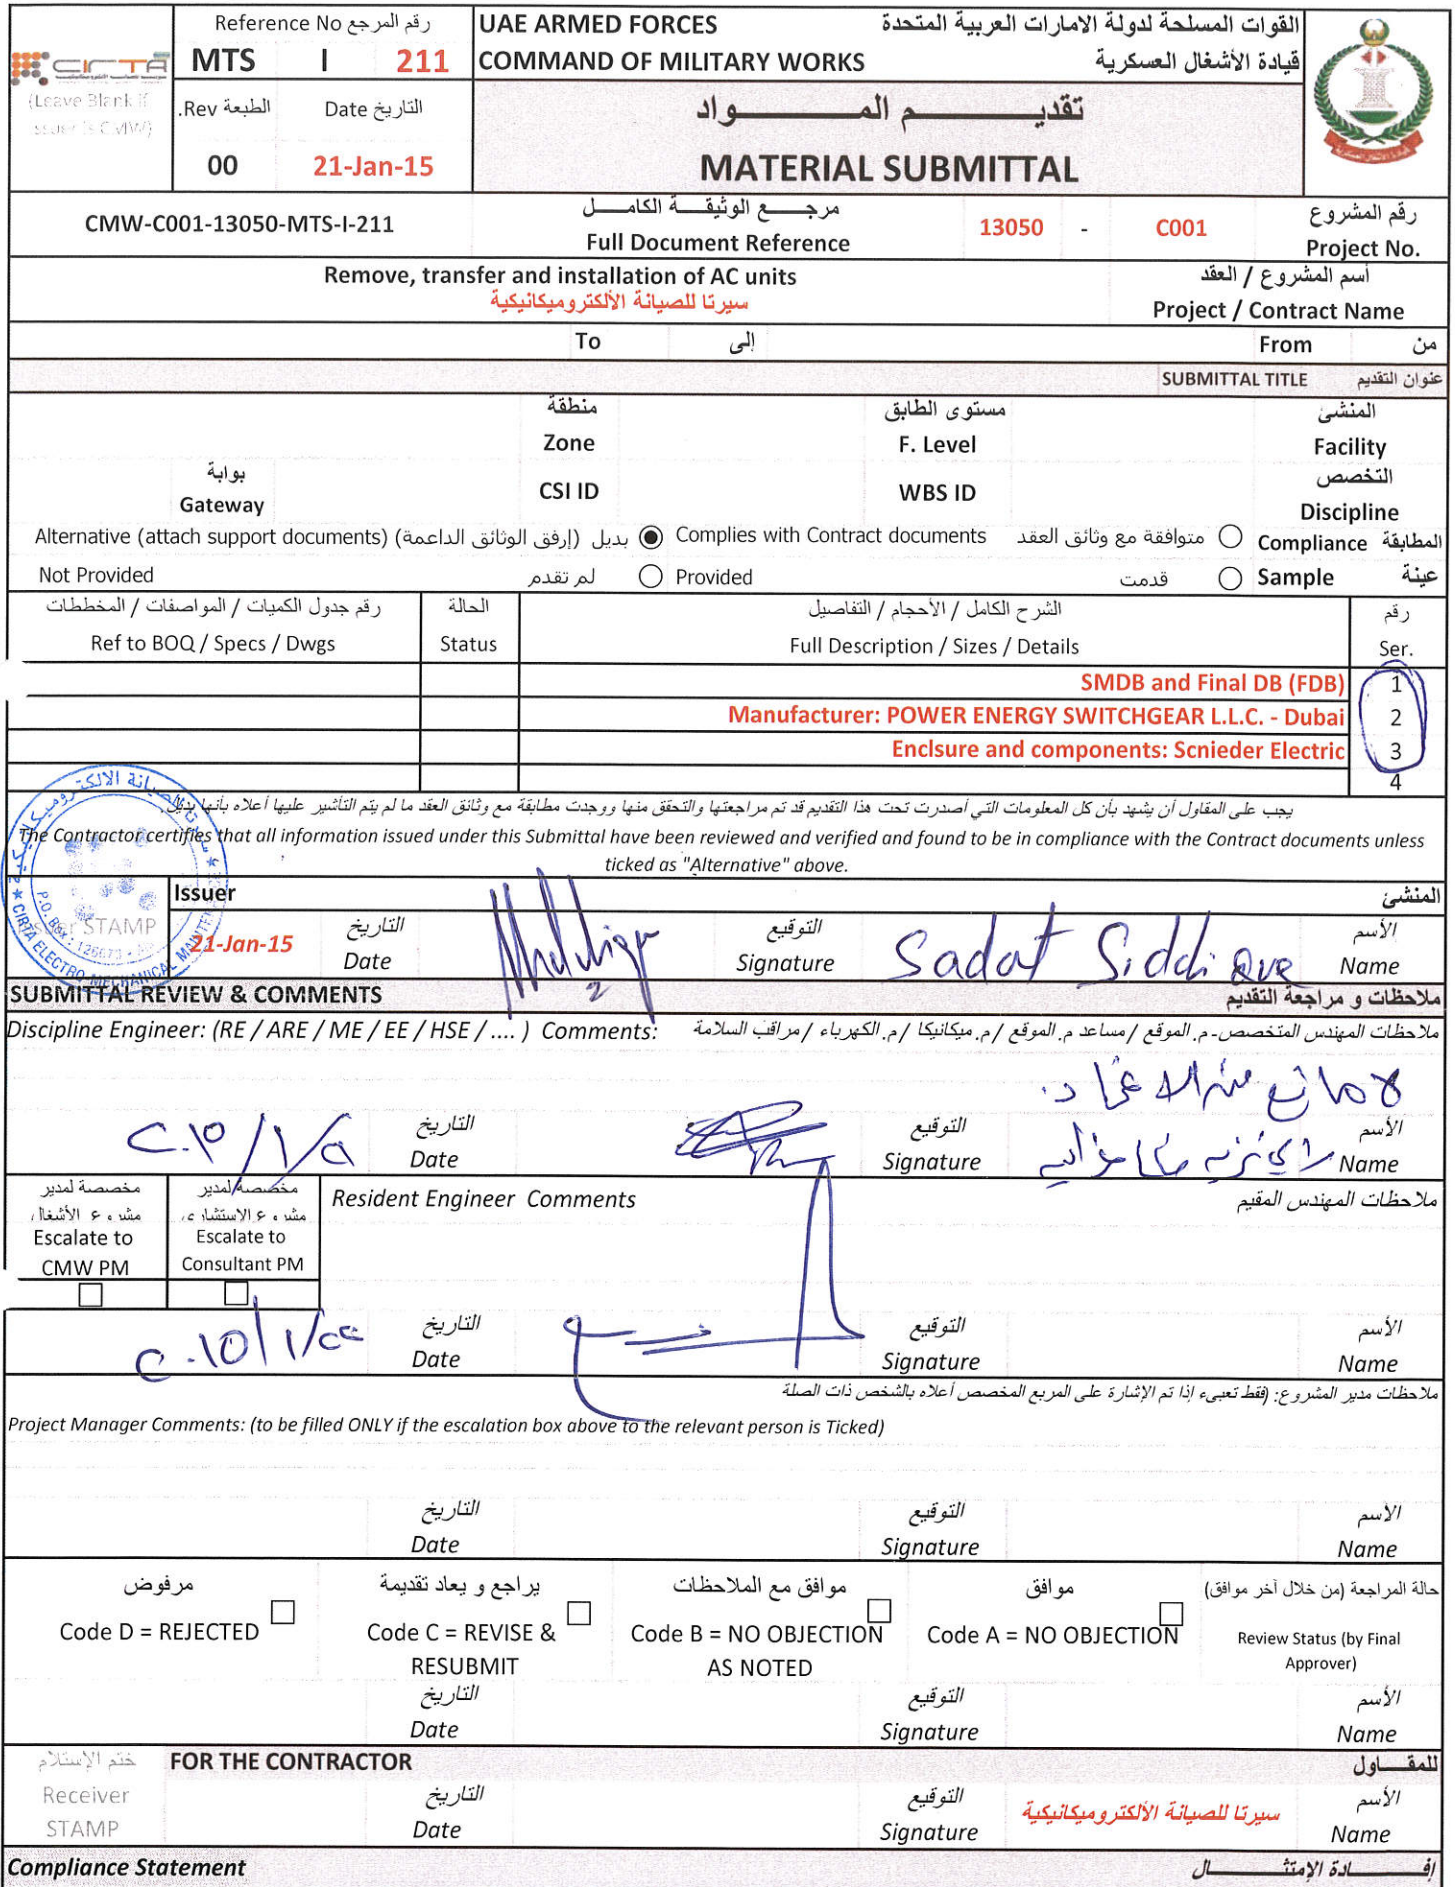 Reference No رقم المرجع
UAE ARMED FORCES القوات المسلحة لدولة الامارات العربية المتحدة
CIRTA
MTS I 211
COMMAND OF MILITARY WORKS قيادة الأشغال العسكرية
(Leave Blank if
issuer is CMW)
الطبعة Rev.
التاريخ Date
تقديـــــم المـــــواد
00 21-Jan-15
MATERIAL SUBMITTAL
CMW-C001-13050-MTS-I-211
مرجــــع الوثيقــــة الكامــــل
Full Document Reference
13050 - C001
رقم المشروع
Project No.
Remove, transfer and installation of AC units
سيرتا للصيانة الألكتروميكانيكية
أسم المشروع / العقد
Project / Contract Name
To إلى
From من
SUBMITTAL TITLE عنوان التقديم
منطقة
Zone
مستوى الطابق
F. Level
المنشئ
Facility
بوابة
Gateway
CSI ID
WBS ID
التخصص
Discipline
Alternative (attach support documents) بديل (إرفق الوثائق الداعمة)
Complies with Contract documents متوافقة مع وثائق العقد
Compliance المطابقة
Not Provided لم تقدم
Provided قدمت
Sample عينة
رقم جدول الكميات / المواصفات / المخططات
Ref to BOQ / Specs / Dwgs
الحالة
Status
الشرح الكامل / الأحجام / التفاصيل
Full Description / Sizes / Details
رقم
Ser.
SMDB and Final DB (FDB) 1
Manufacturer: POWER ENERGY SWITCHGEAR L.L.C. - Dubai 2
Enclsure and components: Scnieder Electric 3
4
يجب على المقاول أن يشهد بأن كل المعلومات التي أصدرت تحت هذا التقديم قد تم مراجعتها والتحقق منها ووجدت مطابقة مع وثائق العقد ما لم يتم التأشير عليها أعلاه بأنها بديل
The Contractor certifies that all information issued under this Submittal have been reviewed and verified and found to be in compliance with the Contract documents unless
ticked as "Alternative" above.
CIRTA ELECTRO-MECHANICAL
P.O. Box
Issuer المنشئ
STAMP
21-Jan-15
التاريخ
Date
التوقيع
Signature
Sadat Siddique
الأسم
Name
SUBMITTAL REVIEW & COMMENTS ملاحظات و مراجعة التقديم
Discipline Engineer: (RE / ARE / ME / EE / HSE / .... ) Comments: ملاحظات المهندس المتخصص- م. الموقع / مساعد م. الموقع / م. ميكانيكا / م. الكهرباء / مراقب السلامة
لا مانع من الاعتماد.
التاريخ
Date
التوقيع
Signature
الأسم
Name
مخصصة لمدير
مشروع الأشغال
Escalate to
CMW PM
مخصصة لمدير
مشروع الاستشاري
Escalate to
Consultant PM
Resident Engineer Comments ملاحظات المهندس المقيم
٢٠١٥/١/٢٢
التاريخ
Date
التوقيع
Signature
الأسم
Name
ملاحظات مدير المشروع: (فقط تعبىء إذا تم الإشارة على المربع المخصص أعلاه بالشخص ذات الصلة
Project Manager Comments: (to be filled ONLY if the escalation box above to the relevant person is Ticked)
التاريخ
Date
التوقيع
Signature
الأسم
Name
مرفوض
Code D = REJECTED
يراجع و يعاد تقديمة
Code C = REVISE &
RESUBMIT
موافق مع الملاحظات
Code B = NO OBJECTION
AS NOTED
موافق
Code A = NO OBJECTION
حالة المراجعة (من خلال آخر موافق)
Review Status (by Final
Approver)
التاريخ
Date
التوقيع
Signature
الأسم
Name
ختم الإستلام
Receiver
STAMP
FOR THE CONTRACTOR للمقــــاول
التاريخ
Date
التوقيع
Signature
سيرتا للصيانة الألكتروميكانيكية
الأسم
Name
Compliance Statement إفــــادة الإمتثــــال